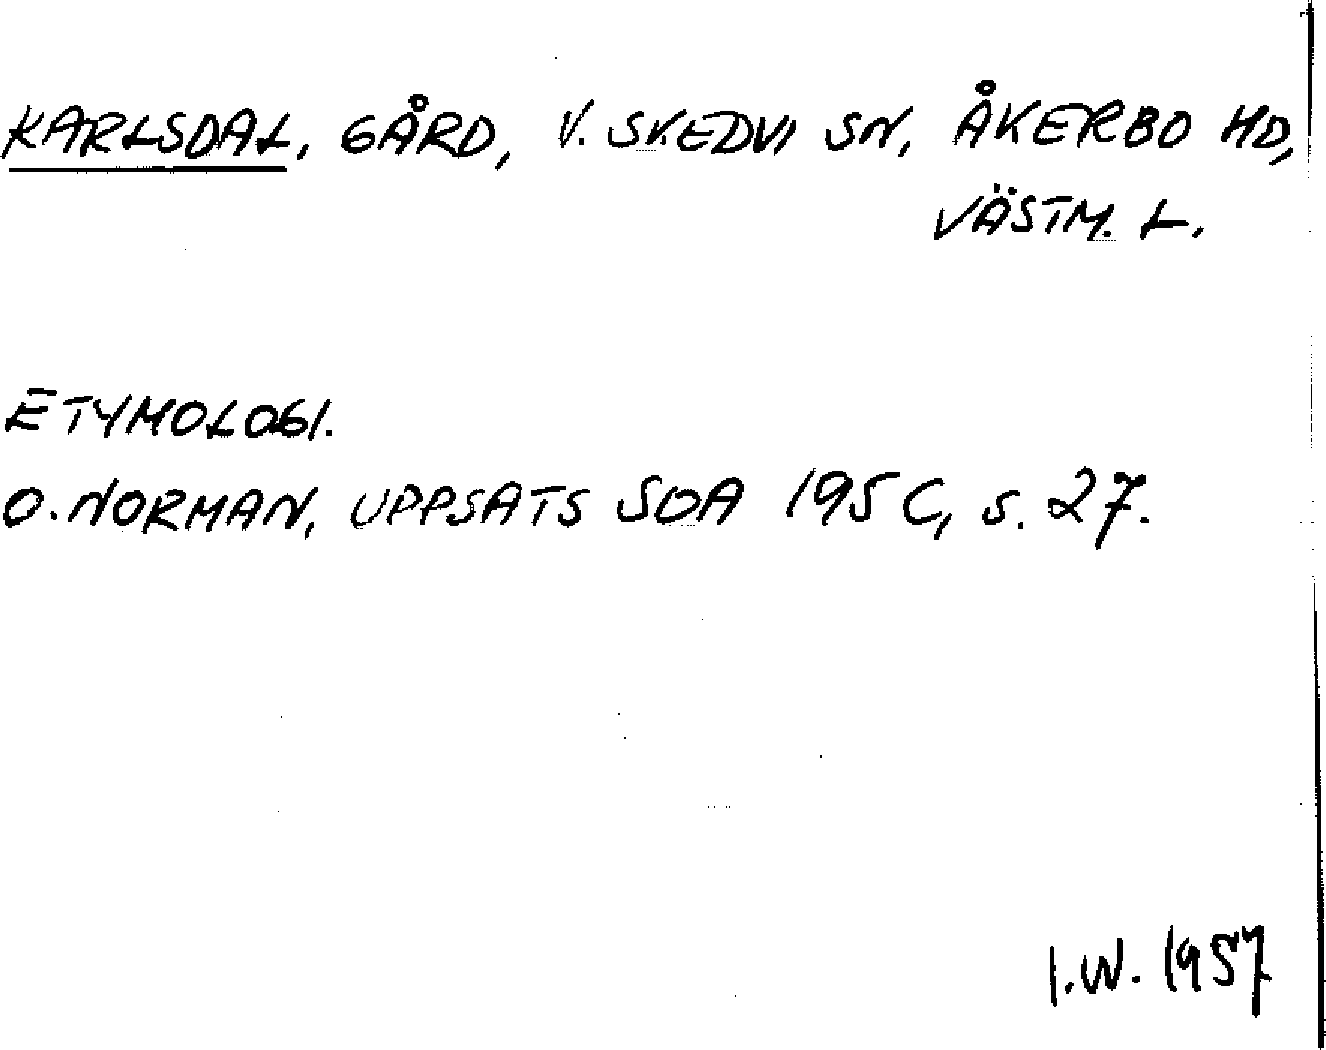 KARLSDAL, GÅRD, V. SKEDVI SN, ÅKERBO HD,
VÄSTM. L.
ETYMOLOGI.
O. NORMAN, UPPSATS SOA 195 C, s. 27.
I.W. 1957